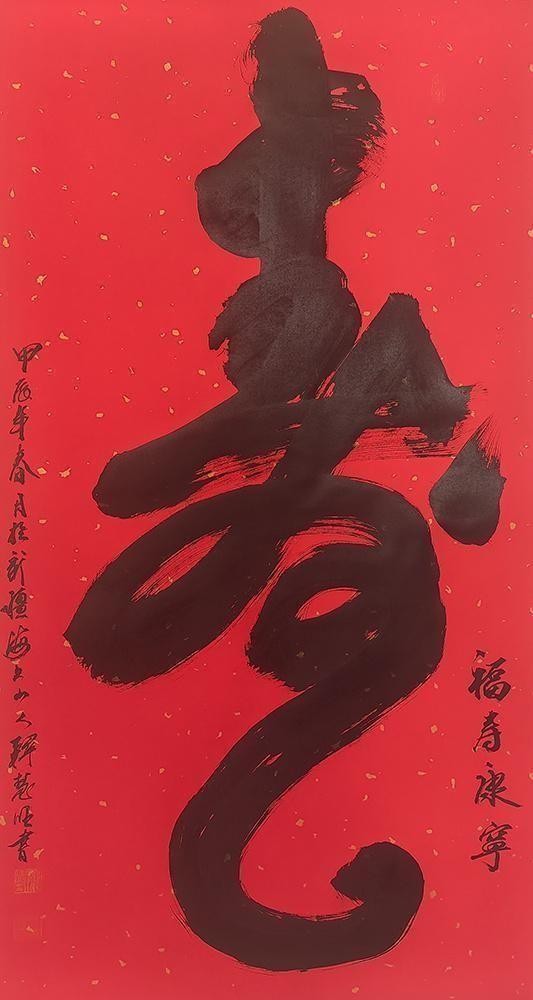 福寿康寧
寿
甲辰年春月於新疆海上山人 慧旺書